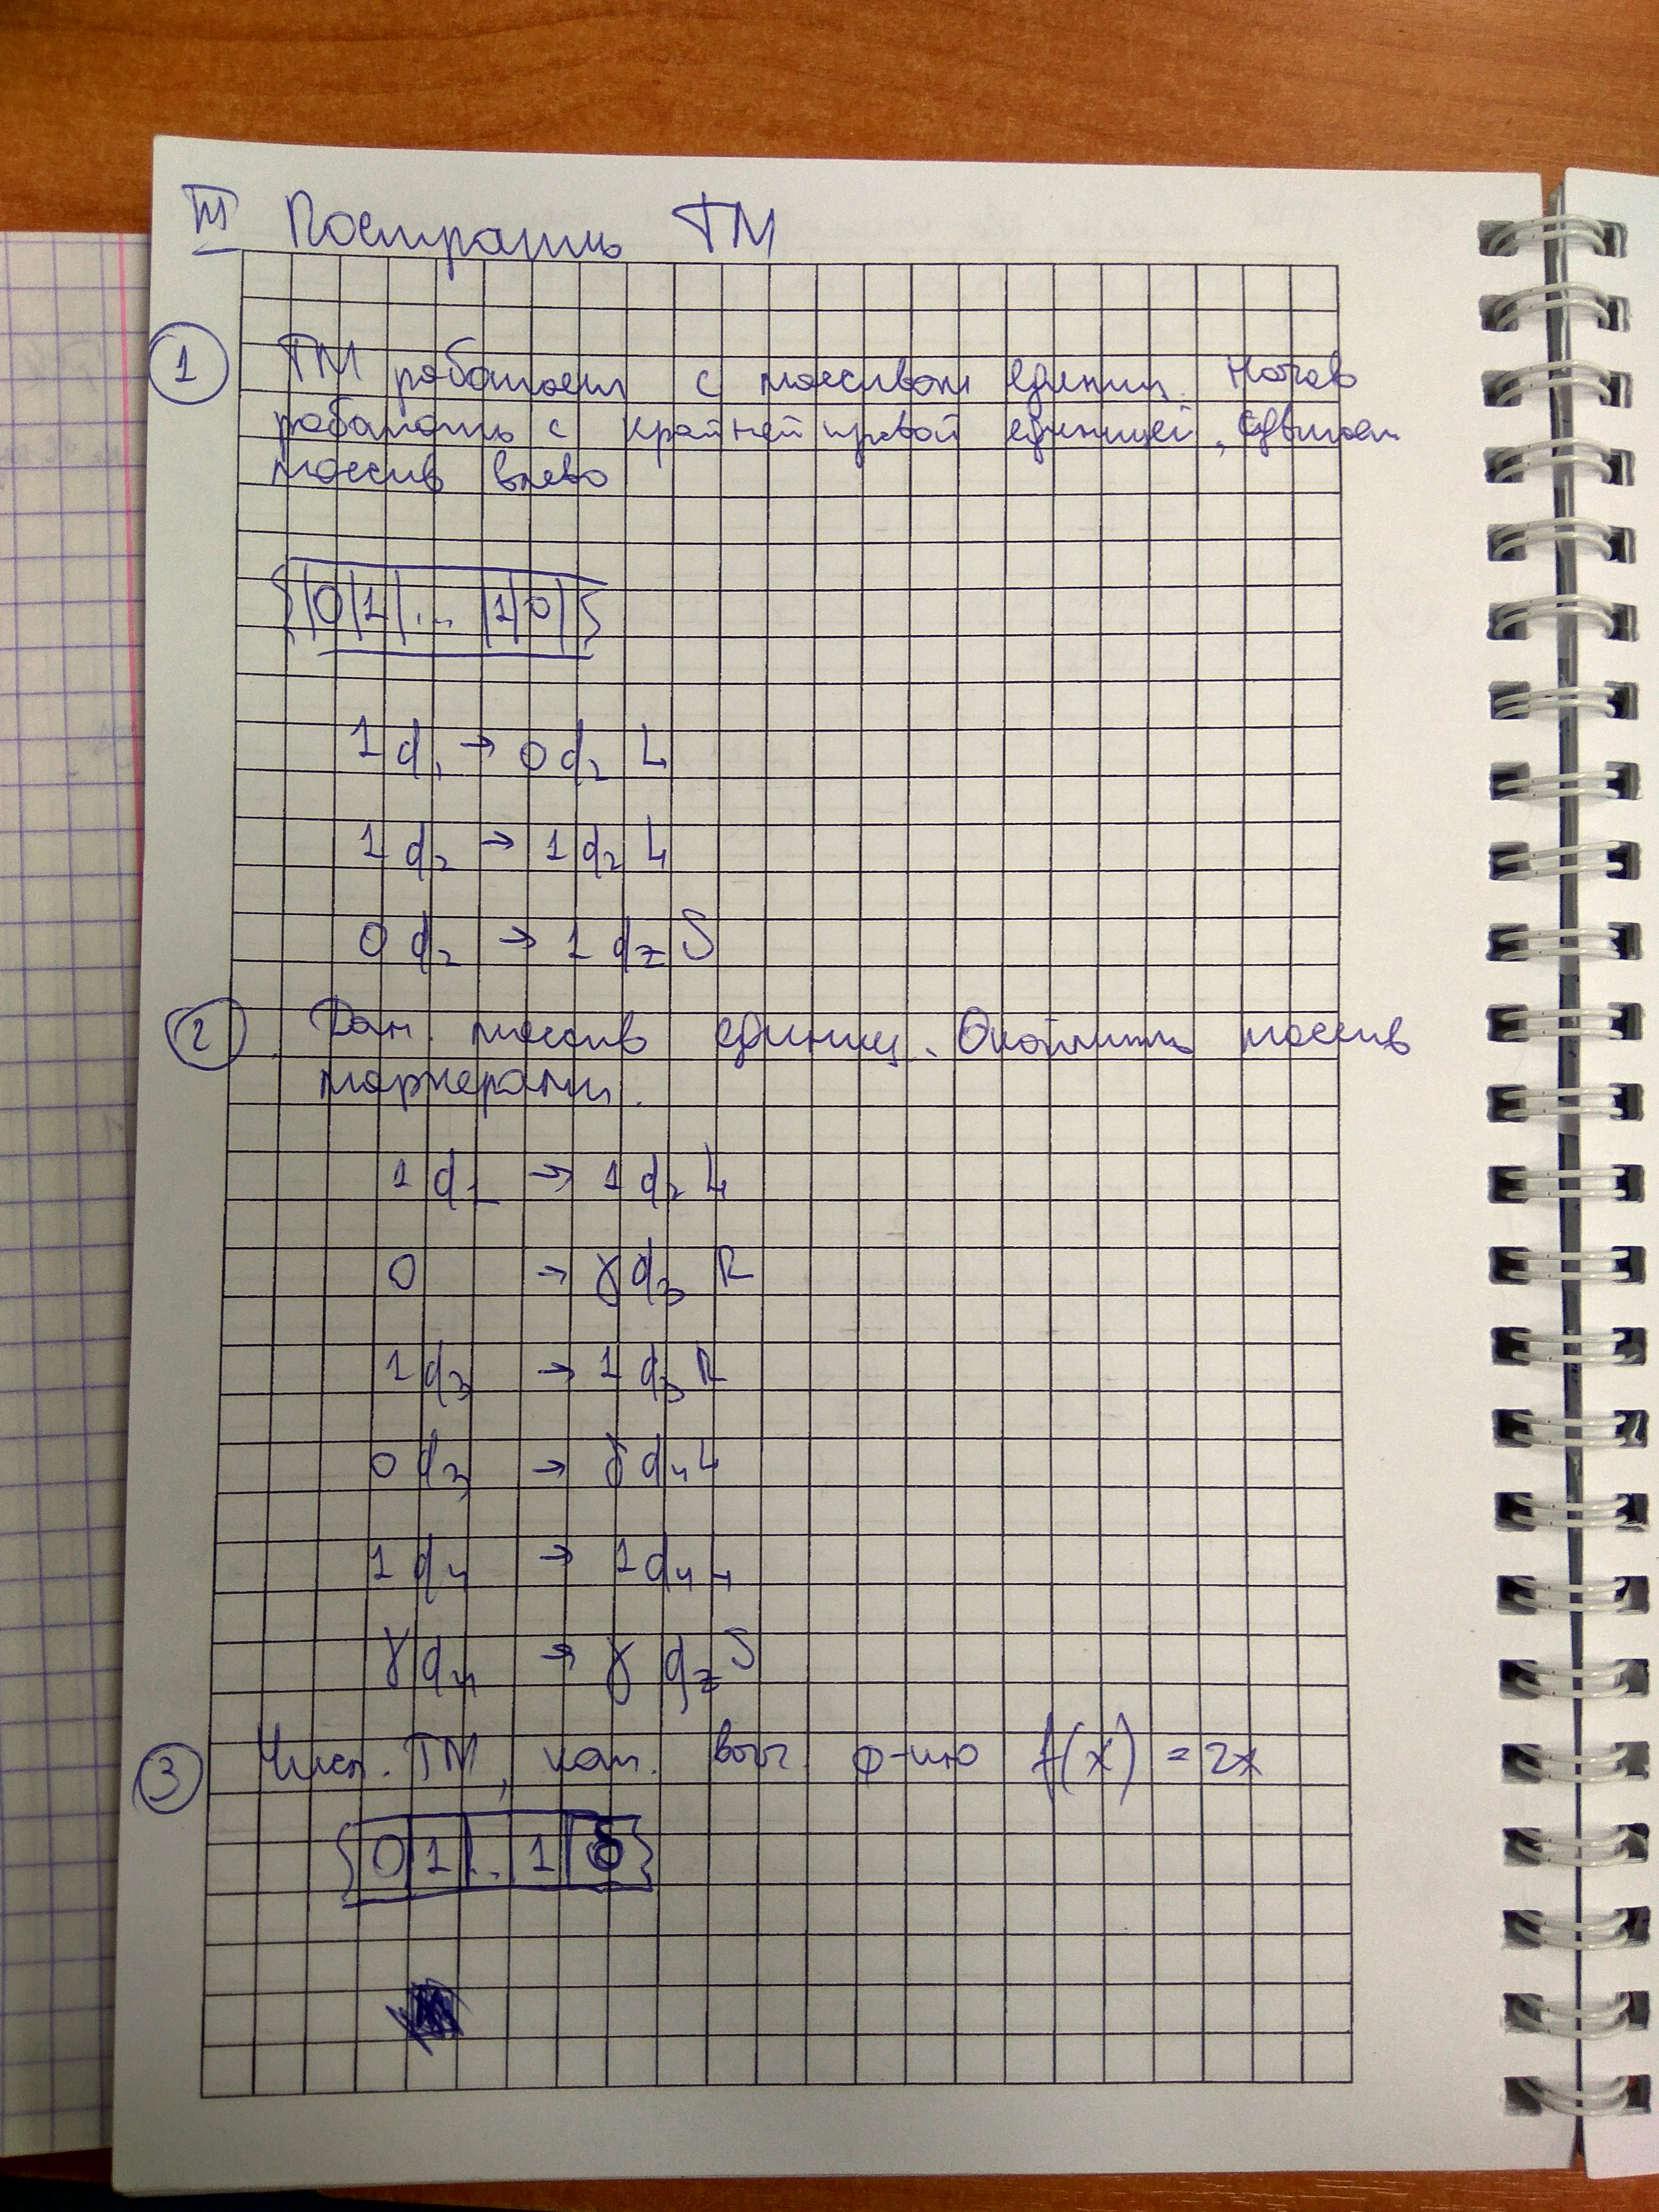 III Построить ТМ
1 ТМ работает с массивом единиц. Начав
работать с крайней правой единицей, сдвигает
массив влево
0 1 ... 1 0
1 q₁ → 0 q₂ L
1 q₂ → 1 q₂ L
0 q₂ → 1 q_z S
2 Дан массив единиц. Окаймить массив
маркерами.
1 q₁ → 1 q₂ L
0 → γ q₃ R
1 q₃ → 1 q₃ R
0 q₃ → γ q₄ L
1 q₄ → 1 q₄ L
γ q₄ → γ q_z S
3 Числ. ТМ, кот. выч. ф-ию f(x) = 2x
0 1 .. 1 0